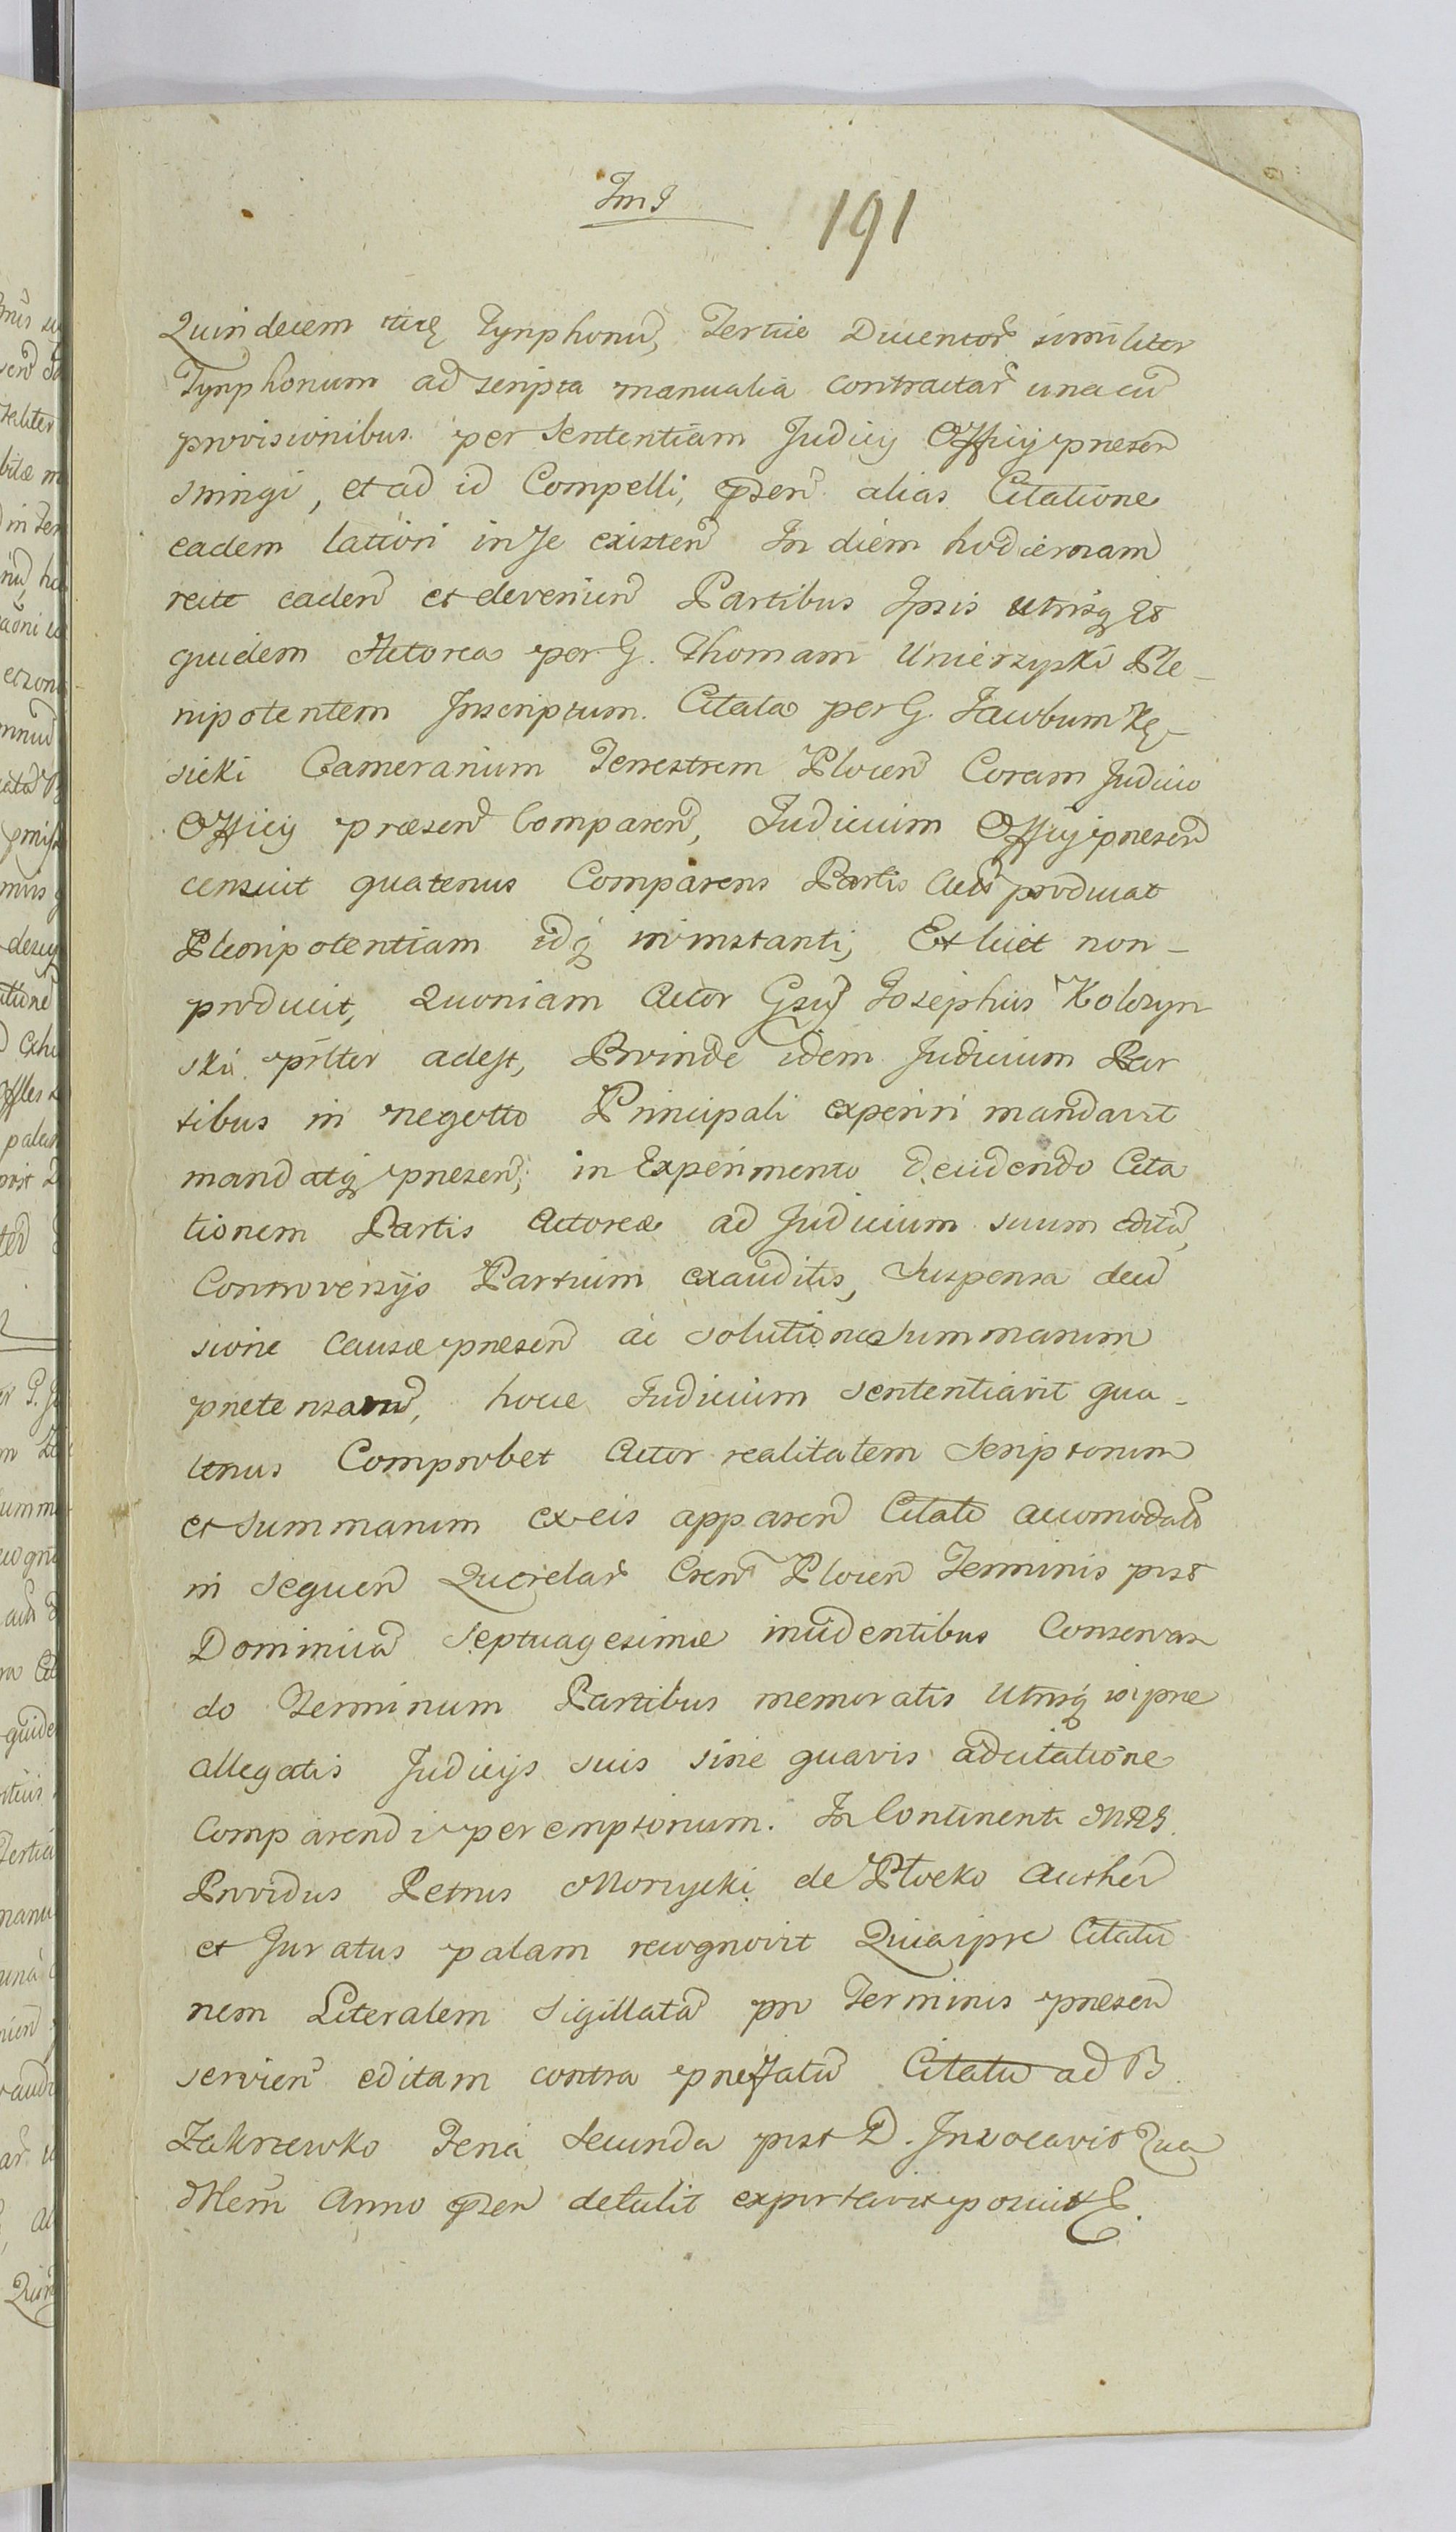 191
Quindecem Tynphonu, Tertiæ Ducentor similiter
Tynphonum ad scripta manualia contractar una cu
provisionibus per Sententiam Judicij Officij præsen
stringi, et ad id Compelli, alias Citatione
eadem latiori in se existen In diem hodiernam
recte caden et devenien Partibus Ipsis utrisq
quidem Actorea per G. Thomam Unierzyski Ple-
nipotentem Inscriptum. Citata per G. Jacobum Kę-
sicki Camerarium Terrestrem Plocen Coram Judicio
Officij præsen Comparen, Judicium Officij præsen
censuit quatenus Comparens Partis producat
Plenipotentiam idq in instanti, Et licet non-
producit, Quoniam Actor Gsus Josephus Kolczyn
ski pnlter adest, Proinde idem Judicium Par
tibus in negotio Principali experiri mandavit
mandatq præsen, in Experimento decidendo Cita
tionem Partis Actoreæ ad Judicium suum editã,
Controversijs Partium exauditis, Suspensa deci
sione causæ præsen ac solutione Summarum
prætensarum, hocce Judicium sententiavit qua-
tenus Comprobet Actor realitatem Scriptorum
et Summarum ex eis apparen Citato accomodat
in sequen Querelar Cren Plocen Terminis post
Dominica Septuagesimæ incidentibus Conservan
do Terminum Partibus memoratis Utrisq
allegatis Judicijs suis sine quavis adcitatione
Comparendi peremptorium. In Continenti MRS.
Providus Petrus Morzycki de Płocko Authen
et Juratus palam recognovit Quia ipse Citatio
nem Literalem Sigillata pro Terminis præsen
servien editam contra præfatu Citatu ad B.
Zakrzewko Feria Secunda post D. Invocavit Qua
dlem Anno detulit exportavit posuit